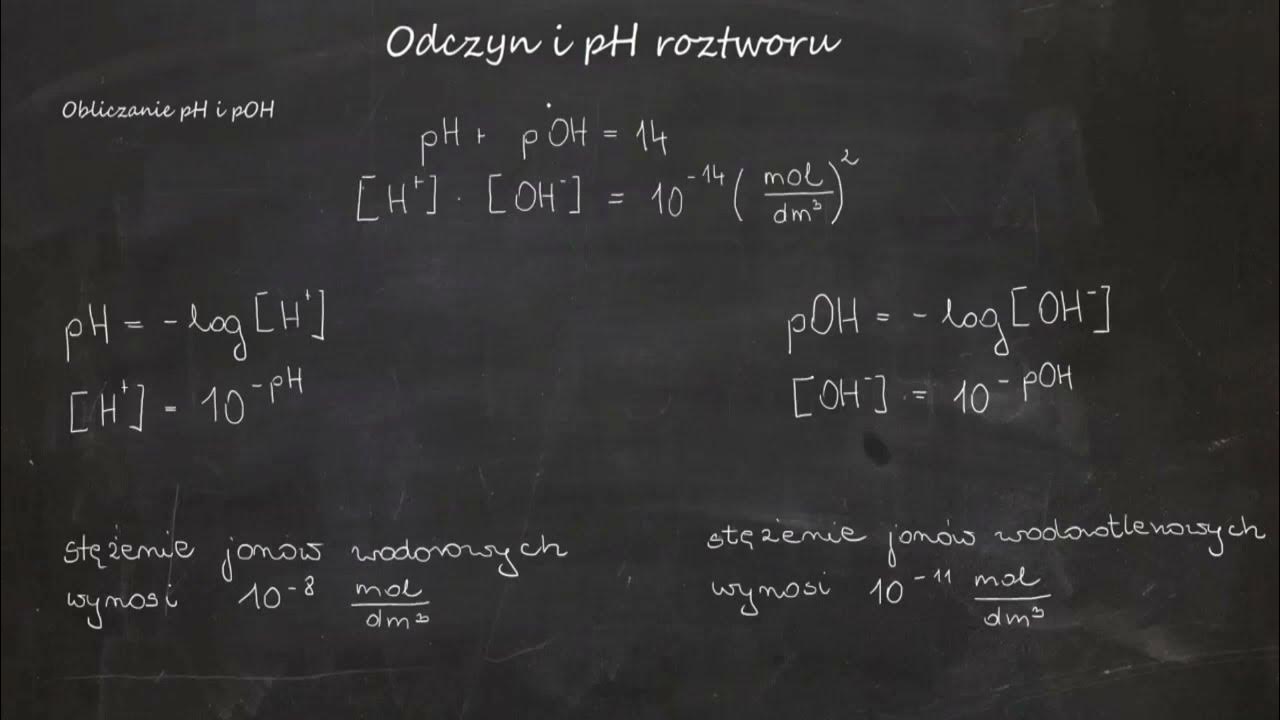 Odczyn i pH roztworu
Obliczanie pH i pOH
pH + pOH = 14
[H⁺] · [OH⁻] = 10⁻¹⁴ (mol/dm³)²
pH = -log[H⁺]
[H⁺] = 10^-pH
pOH = -log[OH⁻]
[OH⁻] = 10^-pOH
stężenie jonów wodorowych
wynosi 10⁻⁸ mol/dm³
stężenie jonów wodorotlenowych
wynosi 10⁻¹¹ mol/dm³